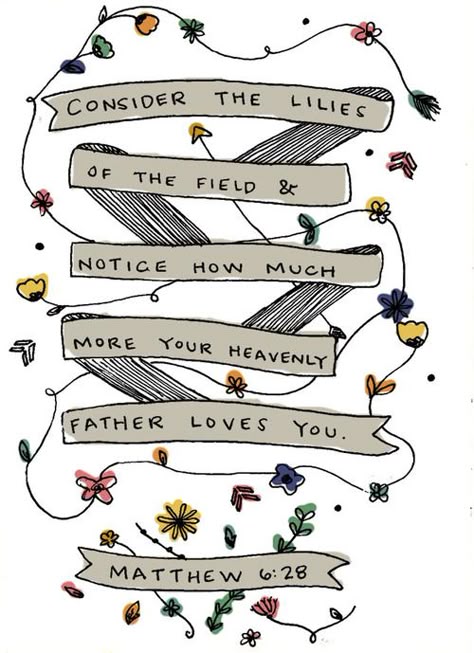 CONSIDER THE LILIES
OF THE FIELD &
NOTICE HOW MUCH
MORE YOUR HEAVENLY
FATHER LOVES YOU.
MATTHEW 6:28